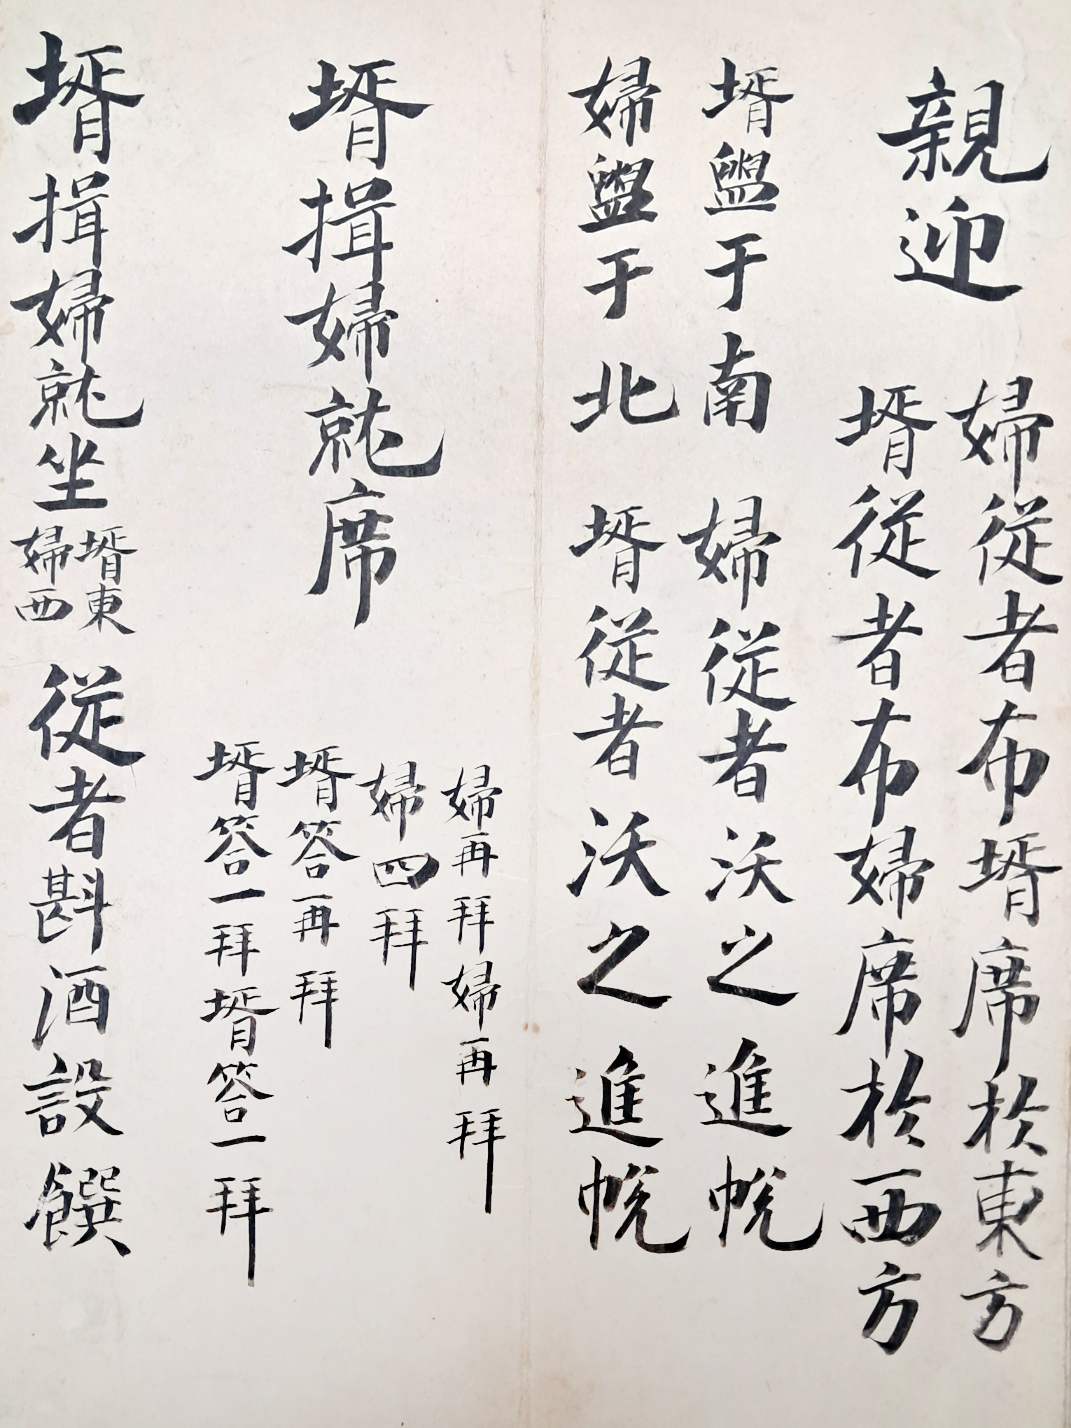 親迎
婦從者布壻席於東方
壻從者布婦席於西方
壻盥于南 婦從者沃之 進帨
婦盥于北 壻從者沃之 進帨
壻揖婦就席
婦再拜婦再拜
婦四拜
壻答再拜
壻答一拜壻答一拜
壻揖婦就坐
壻東
婦西
從者斟酒設饌